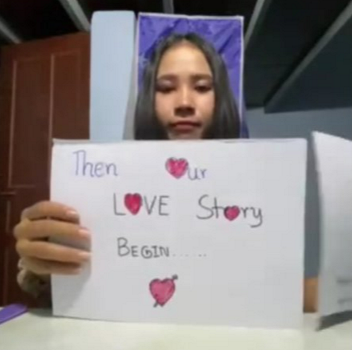 Then Our
LOVE Story
BEGIN.....